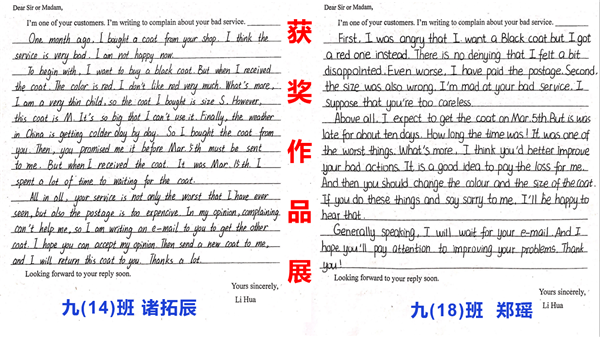 Dear Sir or Madam,
I'm one of your customers. I'm writing to complain about your bad service.
One month ago, I bought a coat from your shop. I think the
service is very bad. I am not happy now.
To begin with, I want to buy a black coat. But when I received
the coat. The color is red. I don't like red very much. What's more,
I am a very thin child, so the coat I bought is size S. However,
this coat is M. It's so big that I can't use it. Finally, the weather
in China is getting colder day by day. So I bought the coat from
you. Then, you promised me it before Mar. 5th must be sent
to me. But when I received the coat. It was Mar. 15th. I
spent a lot of time to waiting for the coat.
All in all, your service is not only the worst that I have ever
seen, but also the postage is too expencive. In my opinion, complaining
can't help me, so I am writing an e-mail to you to get the other
coat. I hope you can accept my opinion. Then send a new coat to me,
and I will return this coat to you. Thanks a lot.
Looking forward to your reply soon.
Yours sincerely,
Li Hua
九(14)班 诸拓辰
获奖作品展
Dear Sir or Madam,
I'm one of your customers. I'm writing to complain about your bad service.
First, I was angry that I want a Black coat but I got
a red one instead. There is no denying that I felt a bit
disappointed. Even worse, I have paid the postage. Second,
the size was also wrong. I'm mad at your bad service. I
suppose that you're too careless.
Above all, I expect to get the coat on Mar.5th. But is was
late for about ten days. How long the time was! It was one of
the worst things. What's more, I think you'd better improve
your bad actions. It is a good idea to pay the loss for me.
And then you should change the colour and the size of the coat.
If you do these things and say sorry to me. I'll be happy to
hear that.
Generally speaking, I will wait for your e-mail. And I
hope you'll pay attention to improving your problems. Thank
you!
Looking forward to your reply soon.
Yours sincerely,
Li Hua
九(18)班 郑瑶